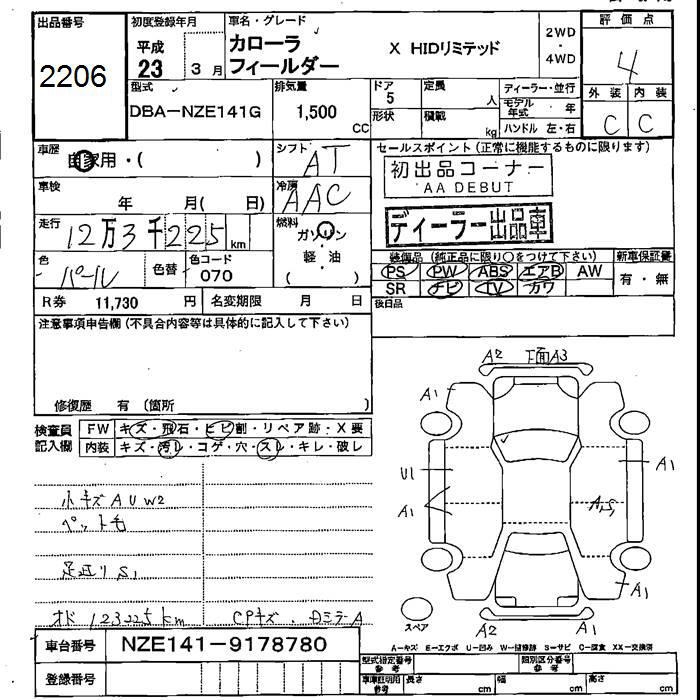 出品番号
2206
初度登録年月
平成
23 3月
車名・グレード
カローラ
フィールダー
X HIDリミテッド
2WD
・
4WD
評価点
4
外装 内装
C C
型式
DBA-NZE141G
排気量
1,500
CC
ドア
5
定員
人
形状
積載
kg
ディーラー・並行
モデル年式 年
ハンドル 左・右
車歴
自家用・( )
シフト
AT
車検
年 月( 日)
冷房
AAC
走行
12万3千225km
燃料
ガソリン
・
軽・油
( )
色
パール
色替
色コード
070
R券 11,730 円
名変期限 月 日
セールスポイント(正常に機能するものに限ります)
初出品コーナー
AA DEBUT
ディーラー出品車
装備品(純正品に限り○をつけて下さい)
PS PW ABS エアB AW
SR ナビ TV カワ
新車保証書
有・無
後日品
注意事項申告欄(不具合内容等は具体的に記入して下さい)
修復歴 有(箇所 )
検査員
記入欄
FW キズ・飛石・ヒビ割・リペア跡・X要
内装 キズ・汚レ・コゲ・穴・スレ・キレ・破レ
小キズAUW2
ペット毛
足廻りS1
オド 123225km CPキズ、
車台番号 NZE141-9178780
登録番号
A2 下面A3
A1
U1
A1
A1
A1
A2
A1
スペア
A-キズ E-エクボ U-凹み W-補修跡 S-サビ C-腐食 XX-交換済
型式指定番号
参考
類別区分番号
参考
車庫証明用
参考
長さ cm
幅 cm
高さ cm